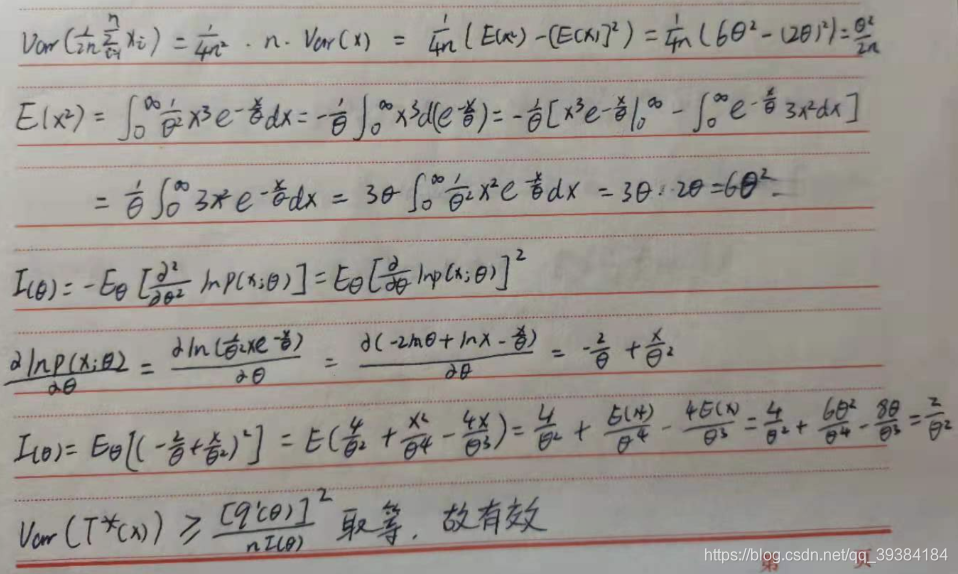 Var(1/2n ∑_{i=1}^{n} x_i) = 1/4n² · n · Var(x) = 1/4n (E(x²) - [E(x)]²) = 1/4n (6θ² - (2θ)²) = θ²/2n
E(x²) = ∫_0^∞ 1/θ² x³ e^{-x/θ} dx = -1/θ ∫_0^∞ x³ d(e^{-x/θ}) = -1/θ [x³ e^{-x/θ} |_0^∞ - ∫_0^∞ e^{-x/θ} 3x² dx]
= 1/θ ∫_0^∞ 3x² e^{-x/θ} dx = 3θ ∫_0^∞ 1/θ² x² e^{-x/θ} dx = 3θ · 2θ = 6θ²
I(θ) = -E_θ [∂²/∂θ² ln p(x;θ)] = E_θ [∂/∂θ ln p(x;θ)]²
∂ ln p(x;θ)/∂θ = ∂ ln(1/θ² x e^{-x/θ})/∂θ = ∂(-2lnθ + ln x - x/θ)/∂θ = -2/θ + x/θ²
I(θ) = E_θ[(-2/θ + x/θ²)²] = E(4/θ² + x²/θ⁴ - 4x/θ³) = 4/θ² + E(x²)/θ⁴ - 4E(x)/θ³ = 4/θ² + 6θ²/θ⁴ - 8θ/θ³ = 2/θ²
Var(T*(x)) ≥ [q'(θ)]²/nI(θ) 取等. 故有效
第 页
https://blog.csdn.net/qq_39384184